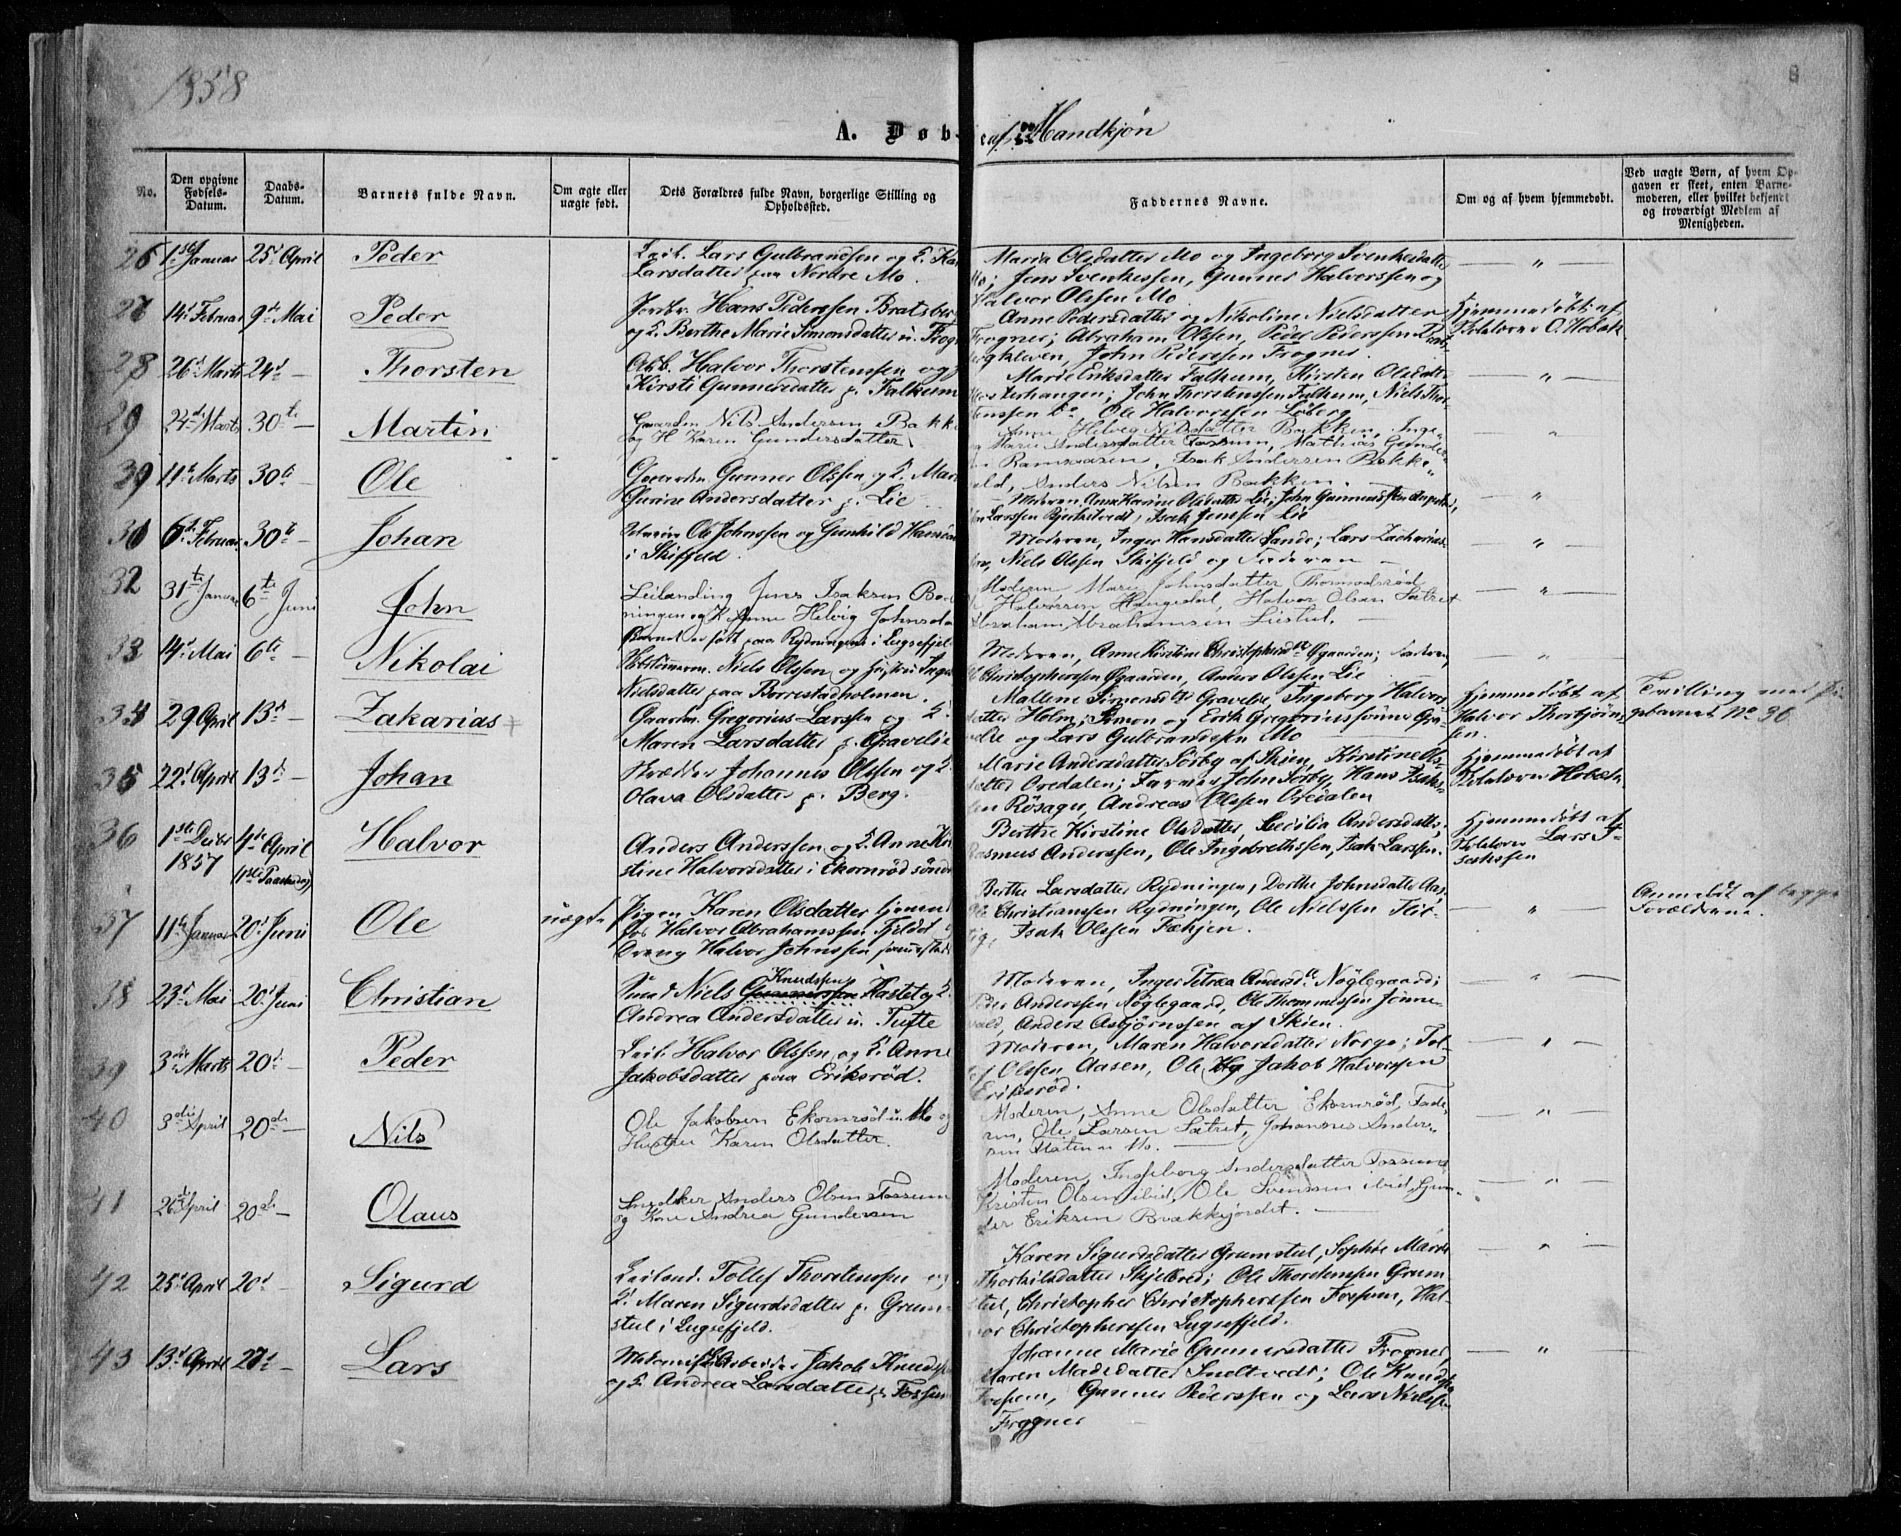 1858
8
A. Døb- te af Mandkjøn
No.
Den opgivne Fødsels-Datum.
Daabs-Datum.
Barnets fulde Navn.
Om ægte eller uægte født.
Dets Forældres fulde Navn, borgerlige Stilling og Opholdssted.
Faddernes Navne.
Om og af hvem hjemmedøbt.
Ved uægte Børn, af hvem Opgaven er skeet, enten Barnemoderen, eller hvilket bekjendt og troværdigt Medlem af Menigheden.
26 1ste Januar 25de April Peder
Leil. Lars Gulbrandsen og K. Kar
Larsdatter paa Nordre Mo
Maria Olsdatter Mo og Ingeborg Svenkesdatter
Mo; Jens Svenkessen, Gunner Halvorssen og
Halvor Olssen Mo
27 14de Februar 9de Mai Peder
Hans Pederssen Bratsber
og K. Berthe Marie Simonsdatter u. Frogn
Anne Pedersdatter og Nikoline Nielsdatter
Frogner; Abraham Olssen, Peder Pederssen Brat-
bergkleven, John Pederssen Frogner.
Hjemmedøbt af
Skolelærer O. Hobæk
28 26de Marts 24de — Thorsten
Arb. Halvor Thorstenssen og
Kirsti Gunnersdatter p. Falkum
Marie Eriksdatter Falkum, Kirsten Olsdatter
Østerhangen; John Thorstenssen Falkum, Niels Thor-
stenssen do, Ole Halvorssen Løberg
29 24de Marts 30te — Martin
Gaardm Nils Andersen Bakke
og H Karen Gundersdatter
Anne Helvig Nilsdatter Bakken, Inge-
og Marie Andersdatter Fossum, Mathias Gunder-
sen Ramsaasen, Isak Andersen Bakke-
old, Anders Nilsen Bakken.
30 11te Marts 30te Ole
Gaardm Gunner Olssen og K. Mari
Gurine Andersdatter p. Lie
Moderen, Anne Karine Olsdatter Lie; John Gunnerssen
Larssen Bjerketvedt, Isak Jenssen Lie
31 6te Februar 30te — Johan
Ole Johnssen og Gunhild Hansda
i Skiffjeld
Moderen, Inger Hansdatter Sande; Lars Zacharias-
sen, Niels Olssen Skifjeld og Faderen
32 31te Januar 6te Juni John
Leilænding Jens Isaksen Ryd
ningen og K Anne Helvig Johnsda
Barnet er født paa Rydningene i Lugsefjel
Moderen Marie Johnsdatter Thormodsrød
Halvorsen Haugedal, Halvor Olsen Sætret
Abraham Abrahamsen Liestul.
33 14de Mai 6te — Nikolai
Niels Olssen og Hustru Inge
Nielsdatter paa Borrestadholmen.
Moderen, Anne Kirstine Christophersdtr Øgaarden; Faderen,
Christopherssen Øgaarden, Anders Olssen Lie
34 29 April 13de — Zakarias
Gaardm. Gregorius Larssen og K.
Maren Larsdatter p. Gravelie
Mallene Simonsdtr Gravelie, Ingeborg Halvors-
datter Holm; Simon og Erik Gregoriussønner Gra-
velie og Lars Gulbrandssen Mo
Hjemmedøbt af
Halvor Thorbjørn-
sen.
Tvilling med Pi-
gebarnet No 36
35 22de April 13de — Johan
Skrædder Johannes Olssen og K.
Olava Olsdatter p. Berg.
Marie Andersdatter Sørby af Skien, Kirstine Ols-
datter Oredalen; Farver John Sørby, Hans Isaks-
sen Røsager, Andreas Olssen Oredalen
Hjemmedøbt af
Skolelærer Hobæk.
36 1ste Decbr 1857 4de April (1ste Paaskedag) Halvor
Anders Anderssen og K. Anne Kir
stine Halvorsdatter i Ekornrød søndr
Berthe Kirstine Olsdatter, Secilia Andersdatter;
Rasmus Anderssen, Ole Ingebrethssen, Isak Larssen.
Hjemmedøbt af
Skolelærer Lars I-
sakssen
37 11te Januar 20de Juni Ole
uægte
Pigen Karen Olsdatter tjenende
hos Halvor Abrahamssen Fjeldet
Dreng Halvor Johnssen
Berthe Larsdatter Rydningen, Dorthe Johnsdatter Aas;
Ole Christianssen Rydningen, Ole Nielssen Flit-
tig, Isak Olssen Fæhjen.
Anmeldt af begge
Forældrene.
38 23de Mai 20de Juni Christian
Smed Niels Gunnerssen Knudssen Hastet og K.
Andrea Andersdatter u. Tufte
Moderen, Inger Petrea Andersdtr Nøglegaard;
Peder Anderssen Nøglegaard, Ole Thommessen Jønne-
vald, Anders Asbjørnssen af Skien.
39 3die Marts 20de — Peder
Leil. Halvor Olssen og K. Anne
Jakobsdatter paa Eriksrød.
Moderen, Maren Halvorsdatter Norge; Tol-
lef Olssen Aasen, Ole og Jakob Halvorssen
Eriksrød.
40 3die April 20de — Nils
Ole Jakobsen Ekornrød u. Mo og
Hustru Karen Olsdatter.
Moderen, Anne Olsdatter Ekornrød, Fade-
ren, Ole Larsen Sætret, Johannes Ander-
sen Platen u Mo.
41 26de April 20de — Olaus
Snedker Anders Olsen Fossum
og Kone Andrea Gundersen
Moderen, Ingeborg Andersdatter Fossum,
Kristen Olsen ibid, Ole Svensen ibid, Gun-
der Eriksen Brækkejordet.
42 25de April 20de — Sigurd
Leiland. Tollef Thorstenssen og
K. Maren Sigurdsdatter p. Grum-
stul i Lugsefjeld.
Karen Sigurdsdatter Grumstul, Sophie Marie
Thorkilsdatter Skjelbred; Ole Thorstenssen Grum-
stul, Christopher Christopherssen Fossum, Hal-
vor Christopherssen Lugsefjeld.
43 13de April 27de — Lars
Jakob Knudss
og K. Andrea Larsdatter p. Fossum
Johanne Marie Gunnersdatter Frogner,
Maren Madsdatter Smeltvedt; Ole Knudssen
Fossum, Gunner Pederssen og Lars Nielssen
Frogner